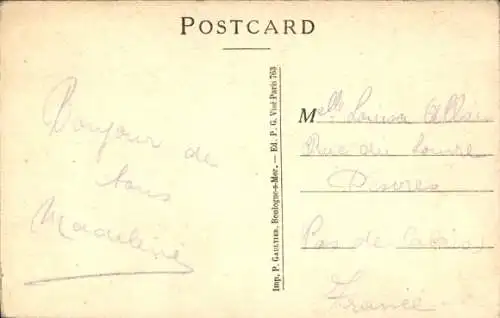 POSTCARD
Bonjour de
tous
Madeleine
Imp. P. GAULTIER, Boulogne-s-Mer. — Ed. P. G. Visé Paris 763
Melle Louisa
Rue du Louvre
Desvres
Pas de Calais
France